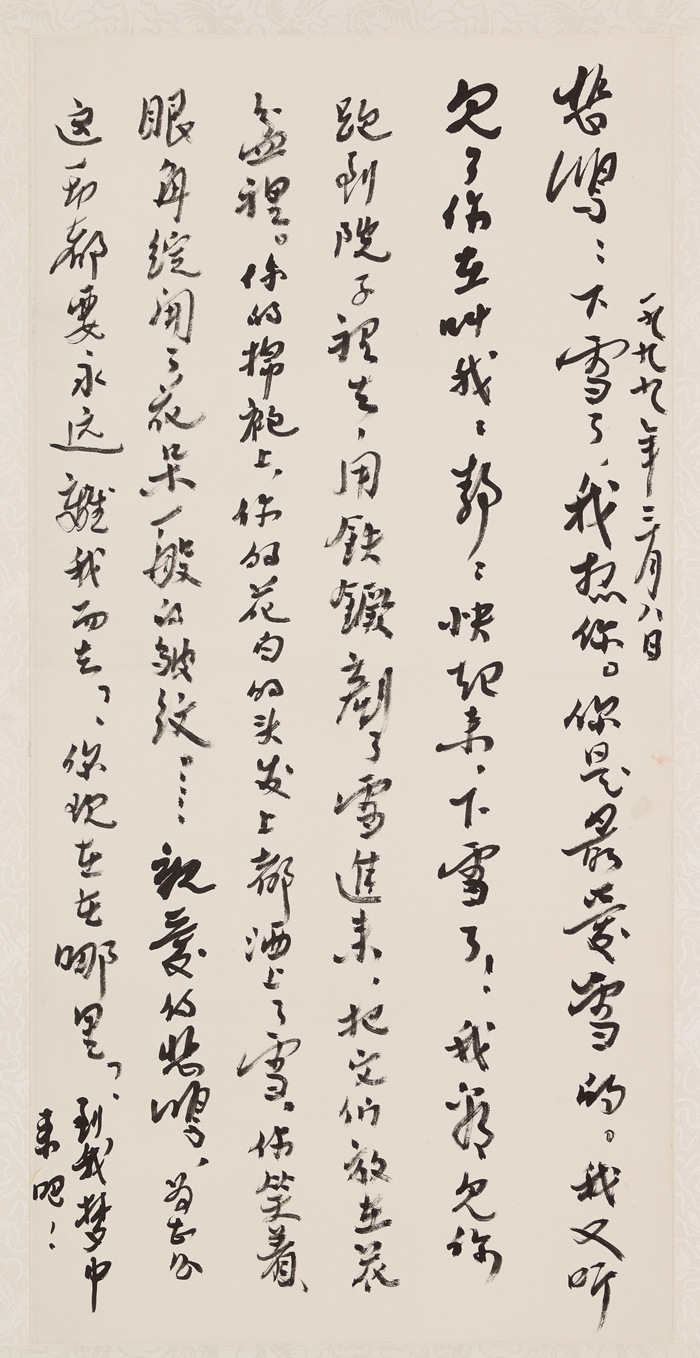 一九九九年三月八日
悲鸿：下雪了，我想你。你是最爱雪的。我又听
见了你在叫我：静：快起来，下雪了！我看见你
跑到院子裡去，用铁鐝剷了雪進来，把它们放在花
盆裡。你的棉袍上，你的花白的头发上都洒上了雪。你笑着，
眼角绽开了花朵一般的皱纹。……親爱的悲鸿，为甚么
这一切都要永远離我而去？你现在在哪里？到我梦中
来吧！